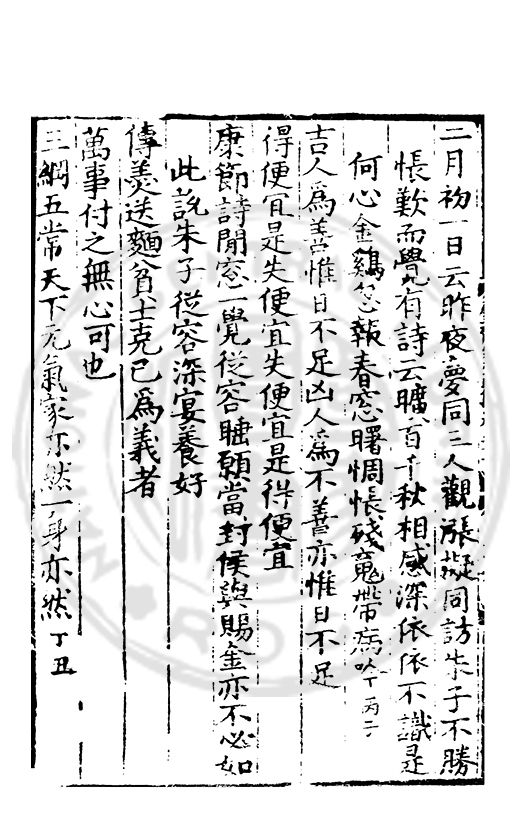 二月初一日云昨夜夢同三人觀漲擬同訪朱子不勝
悵歎而覺有詩云曠百千秋相感深依依不識是
何心金鷄忽報春窓曙惆悵殘魂帶病吟 丙子
吉人爲善惟日不足凶人爲不善亦惟日不足
得便宜是失便宜失便宜是得便宜
康節詩閒窓一覺從容睡願當封侯與賜金亦不必如
此說朱子從容深宴養好
傳羙送麵貧士克己爲義者
萬事付之無心可也
三綱五常天下元氣家亦然一身亦然 丁丑